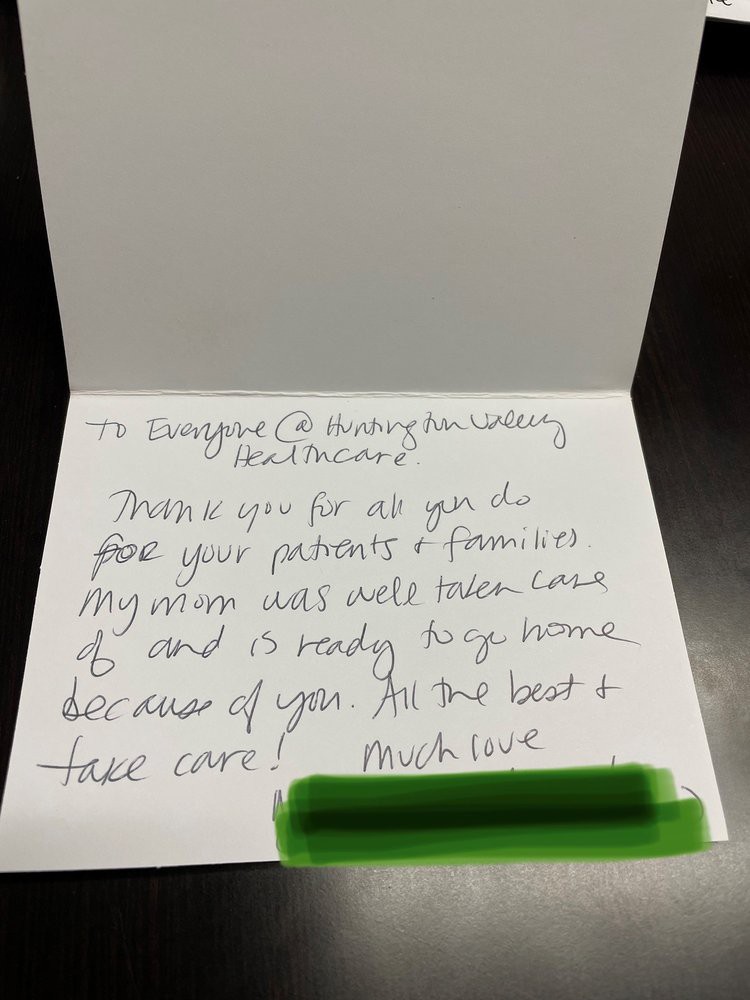 To Everyone @ Huntington Valley
Healthcare.
Thank you for all you do
for your patients + families.
My mom was well taken care
of and is ready to go home
because of you. All the best +
take care! Much love